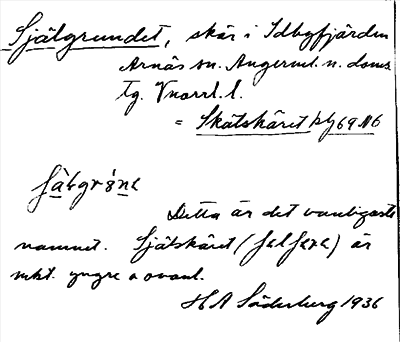 Själgrundet, skär i Idbyfjärden
Arnäs sn. Ångerml. n. doms.
tg. Vnorrl. l.
= Skatskäret bl 69 N6
Detta är det vanligaste
namnet. Själskäret ( ) är
mkt. yngre o ovanl.
H A Söderberg 1936